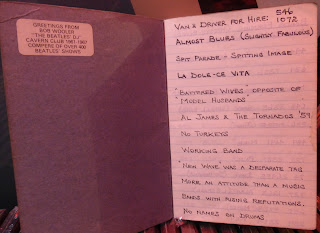 GREETINGS FROM
BOB WOOLER
"THE BEATLES' DJ"
CAVERN CLUB 1961-1967
COMPERE OF OVER 400
BEATLES' SHOWS
VAN & DRIVER FOR HIRE: 546
1072
ALMOST BLURS (SLIGHTLY FABULOUS)
SPIT PARADE - SPITTING IMAGE
LA DOLE-CE VITA
"BATTERED WIVES" OPPOSITE OF
MODEL HUSBANDS
AL JAMES & THE TORNADOS '59
NO TURKEYS
WORKING BAND
'NEW WAVE' WAS A DISPARATE TAG
MORE AN ATTITUDE THAN A MUSIC
BANDS WITH RISING REPUTATIONS.
NO NAMES ON DRUMS